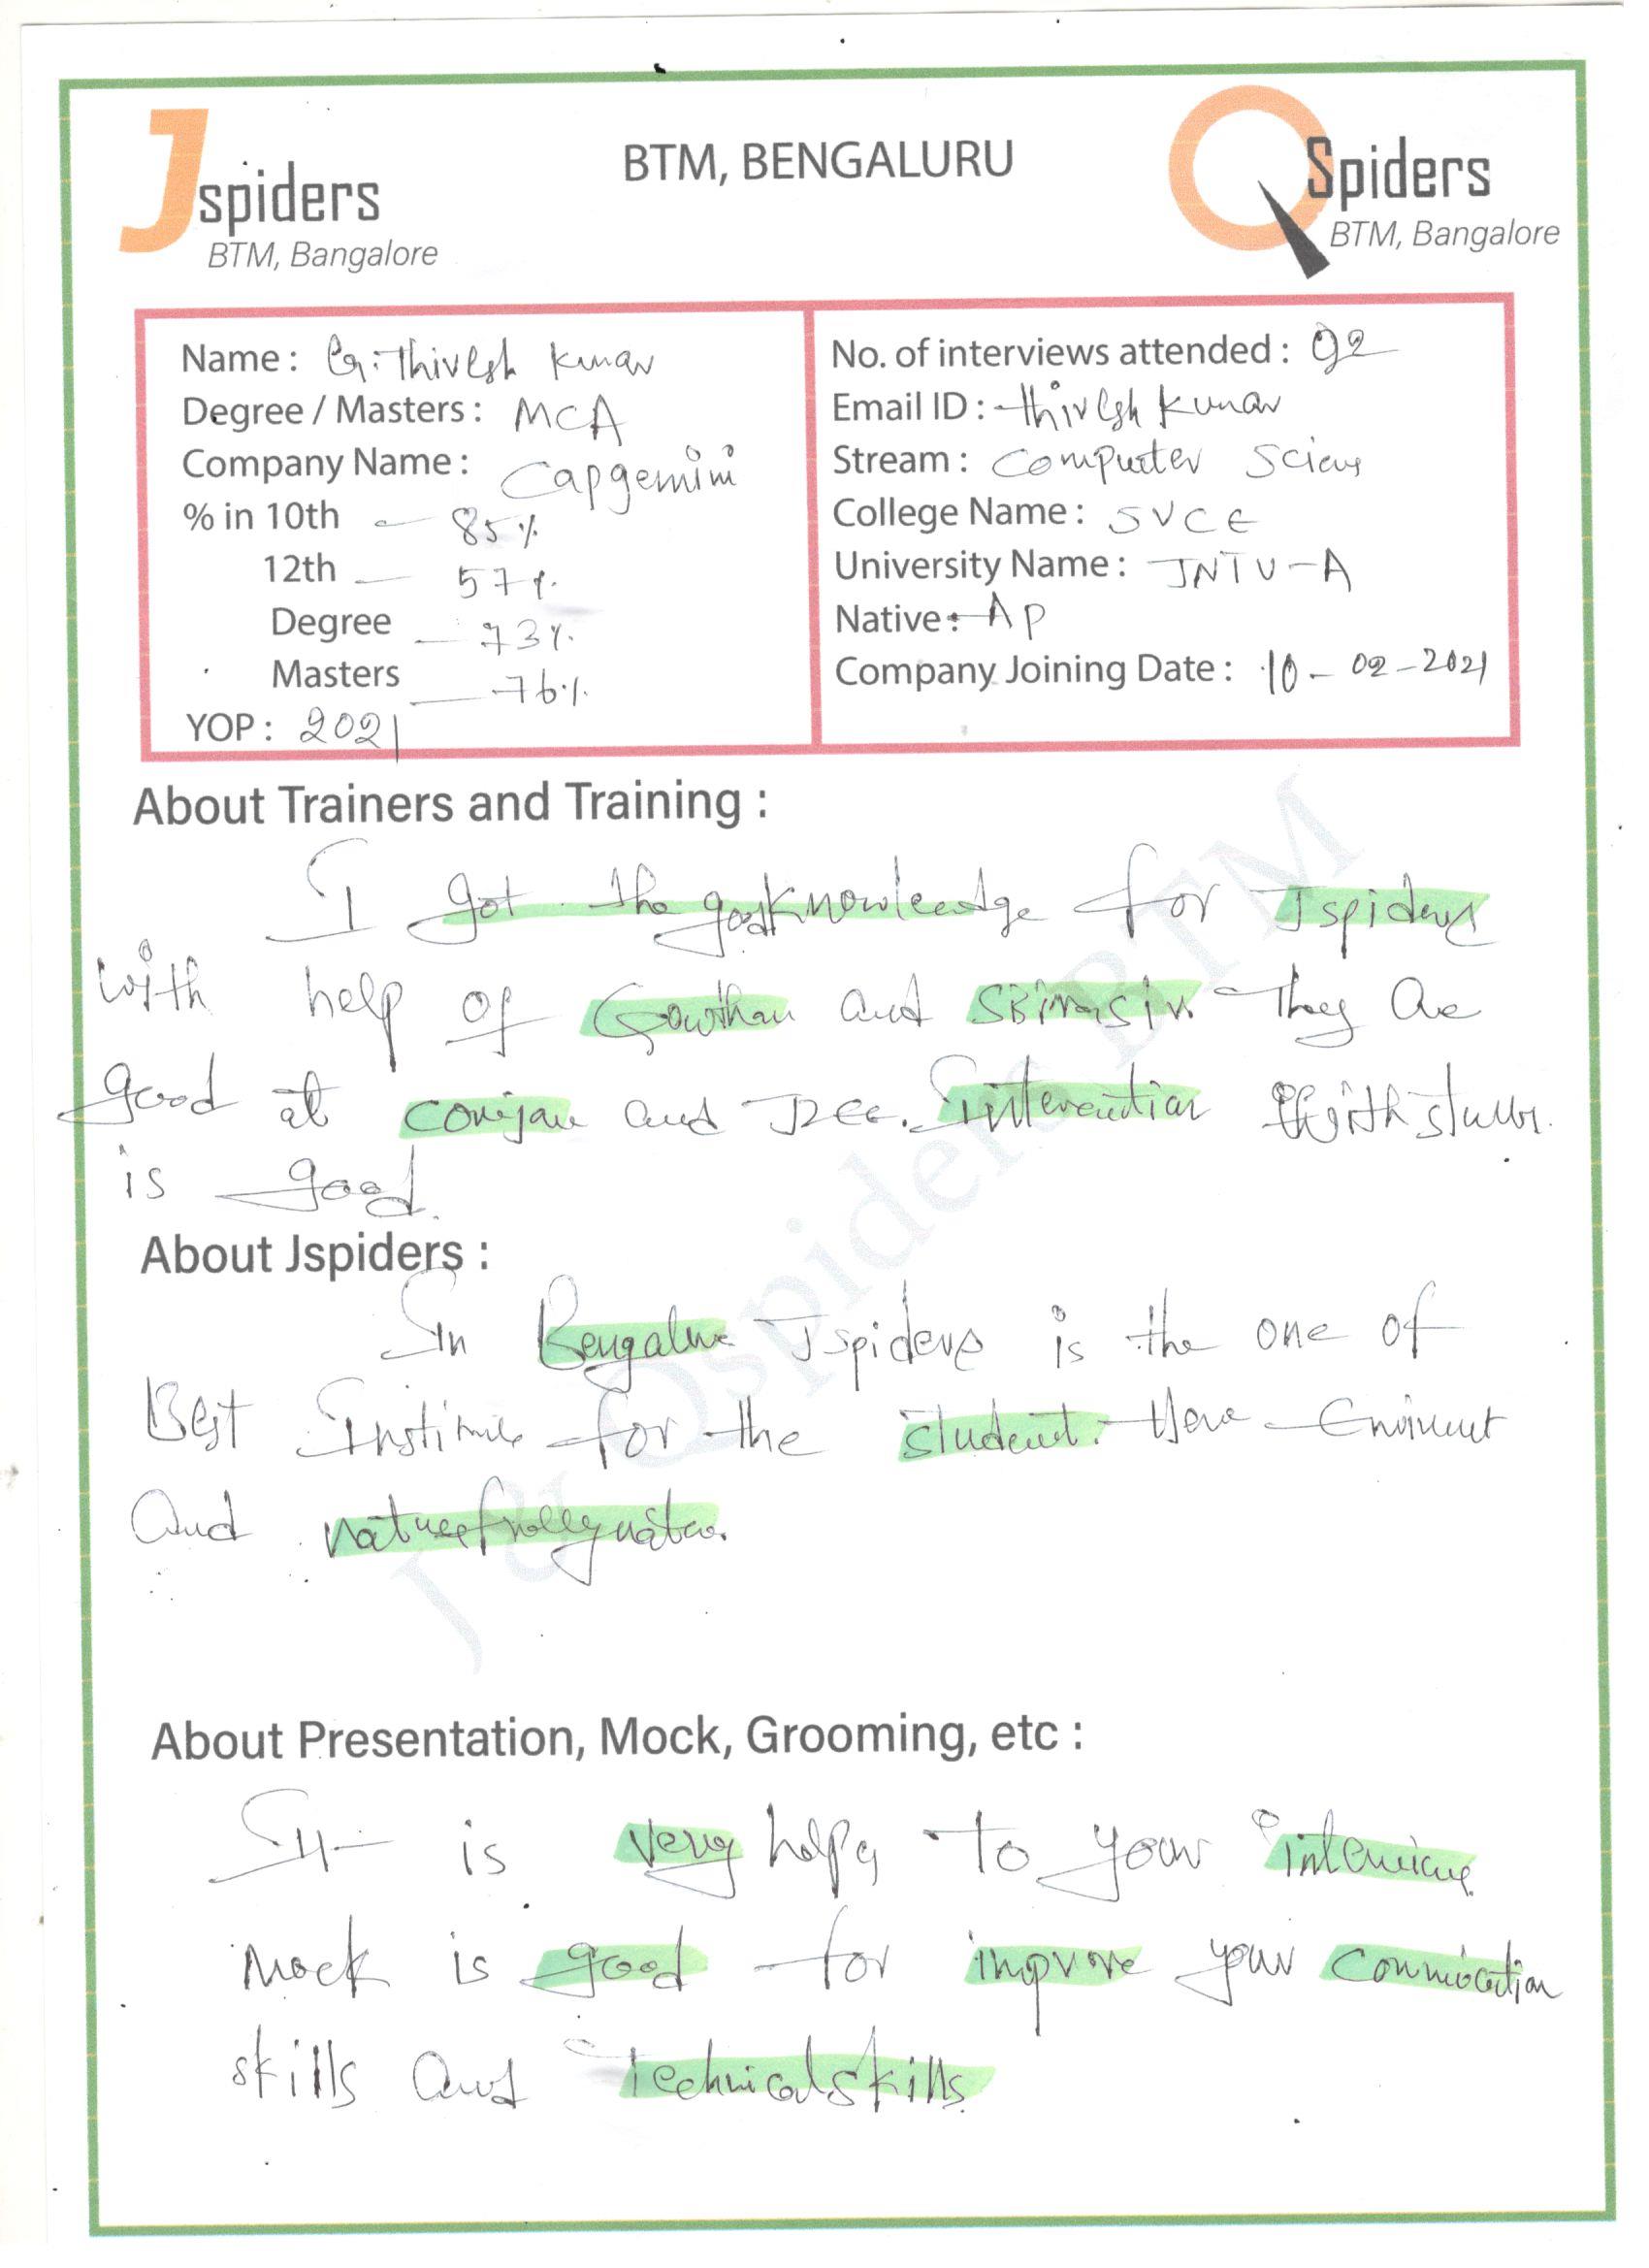 Jspiders
BTM, Bangalore
BTM, BENGALURU
QSpiders
BTM, Bangalore
Name : G. Thivesh Kumar
Degree / Masters : MCA
Company Name : Capgemini
% in 10th - 85%
12th - 57%
Degree - 73%
Masters - 76%
YOP : 2021
No. of interviews attended : 02
Email ID : thivesh Kumar
Stream : Computer
College Name : SVCE
University Name : JNTU-A
Native : AP
Company Joining Date : 10-02-2021
About Trainers and Training :
I got the good knowleedge for Jspiders
with help of Gowtham and They are
good at and J2EE. with
is good.
About Jspiders :
In Bengalure Jspiders is the one of
Best for the student. Here
and
About Presentation, Mock, Grooming, etc :
It is very to your
Mock is good for improve your
skills and Technical skills
J & Qspiders BTM